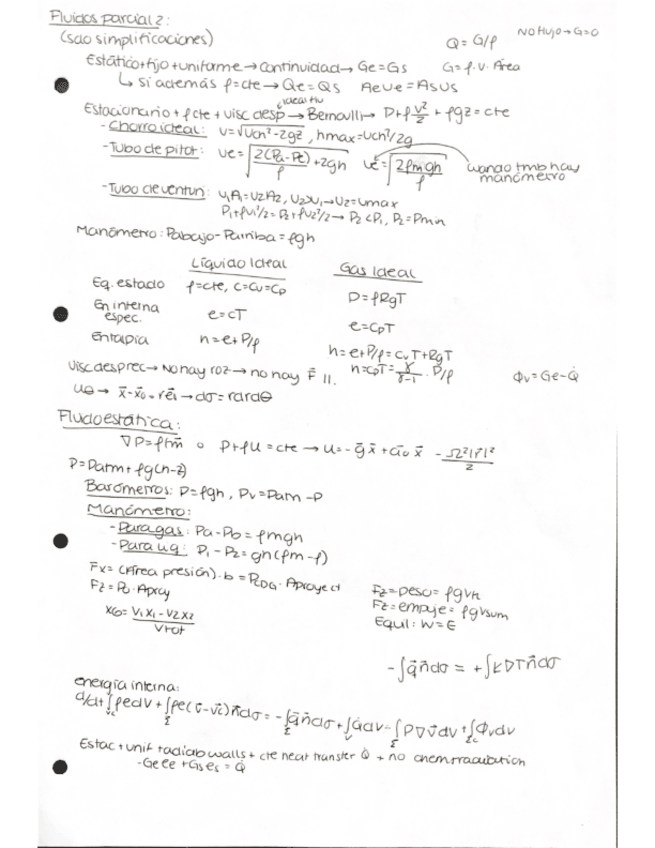 Fluidos parcial 2:
(solo simplificaciones)
Q = G/ρ
No flujo → G=0
Estático + fijo + uniforme → continuidad → Ge = Gs
G = ρ·v·Área
↳ si además ρ=cte → Qe = Qs AeVe = AsUs
Estacionario + ρ cte + visc desp → Bernoulli → P+ρ v²/2 + ρgz = cte
- Chorro ideal: v=√(Uch² - 2gz), hmax = Uch²/2g
- Tubo de pitot: ve = √(2(Pa-Pe)/ρ + 2gh) ve = √(2ρmgh/ρ) cuando tmb hay
manómetro
- Tubo de venturi: U1A1 = U2A2, U2>U1 → U2 = Umax
P1+ρU1²/2 = P2+ρU2²/2 → P2 < P1, P2 = Pmin
Manómetro: Pabajo - Parriba = ρgh
Líquido Ideal Gas Ideal
Eq. estado ρ=cte, c=cv=cp P=ρRgT
En interna
espec. e=cT e=cpT
Entalpia h=e+P/ρ h=e+P/ρ=CvT+RgT
h=cpT= γ/γ-1 · P/ρ
Visc desprec → No hay roz → no hay F⃗ ||.
Φv = Ge - Q̇
uθ → x⃗-x⃗0 = r e⃗r → dσ = rdrdθ
Fluidoestática:
∇P = ρf⃗m o P+ρU = cte → U = -g⃗ x⃗ + a⃗0 x⃗ - Ω²|r⃗|²/2
P = Patm + ρg(h-z)
Barómetros: P=ρgh, Pv = Patm - P
Manómetro:
- Para gas: Pa - Pb = ρmgh
- Para liq: P1 - P2 = gh(ρm - ρ)
Fx = (Área presión)·b = PCDG · Aproyect
Fz = P0 · Aproy
Fz = peso = ρgVh
Fz = empuje = ρgVsum
Equil: W = E
XG = V1X1 - V2X2 / Vtot
-∫q⃗n⃗dσ = +∫k∇Tn⃗dσ
energía interna:
d/dt ∫ρedV + ∫ρe(v⃗-v⃗c)n⃗dσ = -∫q⃗n⃗dσ + ∫Q̇dv - ∫P∇v⃗dv + ∫Φvdv
Estac + unif + adiab walls + cte heat transfer Q̇ + no chem
-Geee + Gses = Q̇